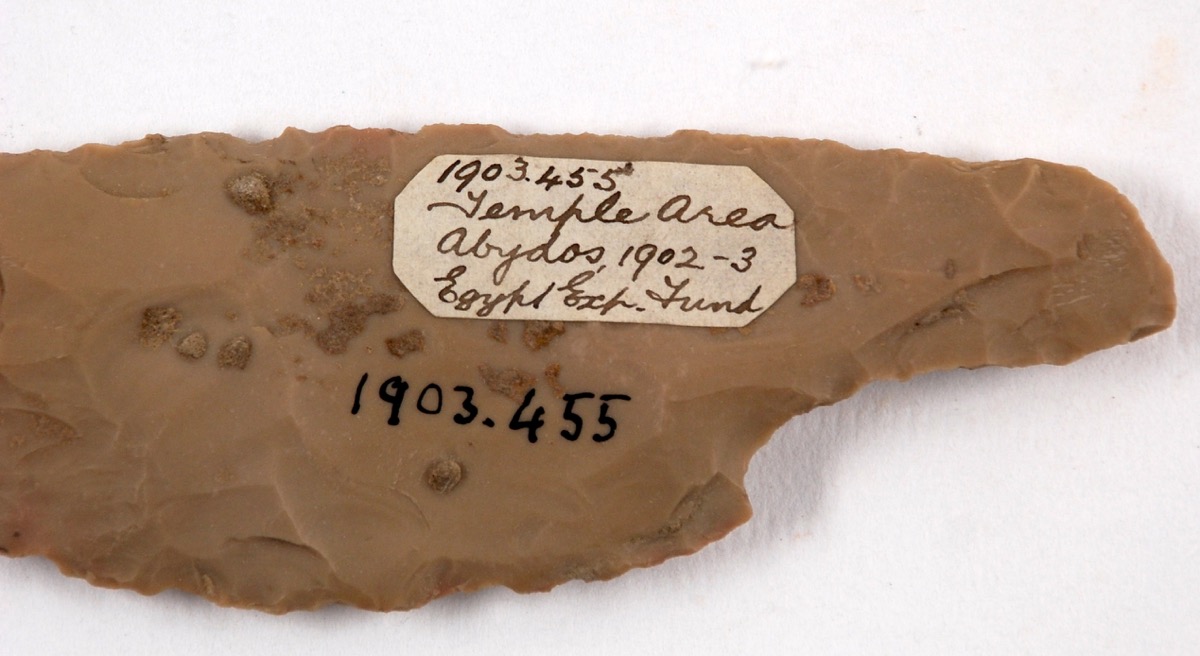 1903.455
Temple Area
Abydos, 1902-3
Egypt Exp. Fund
1903.455